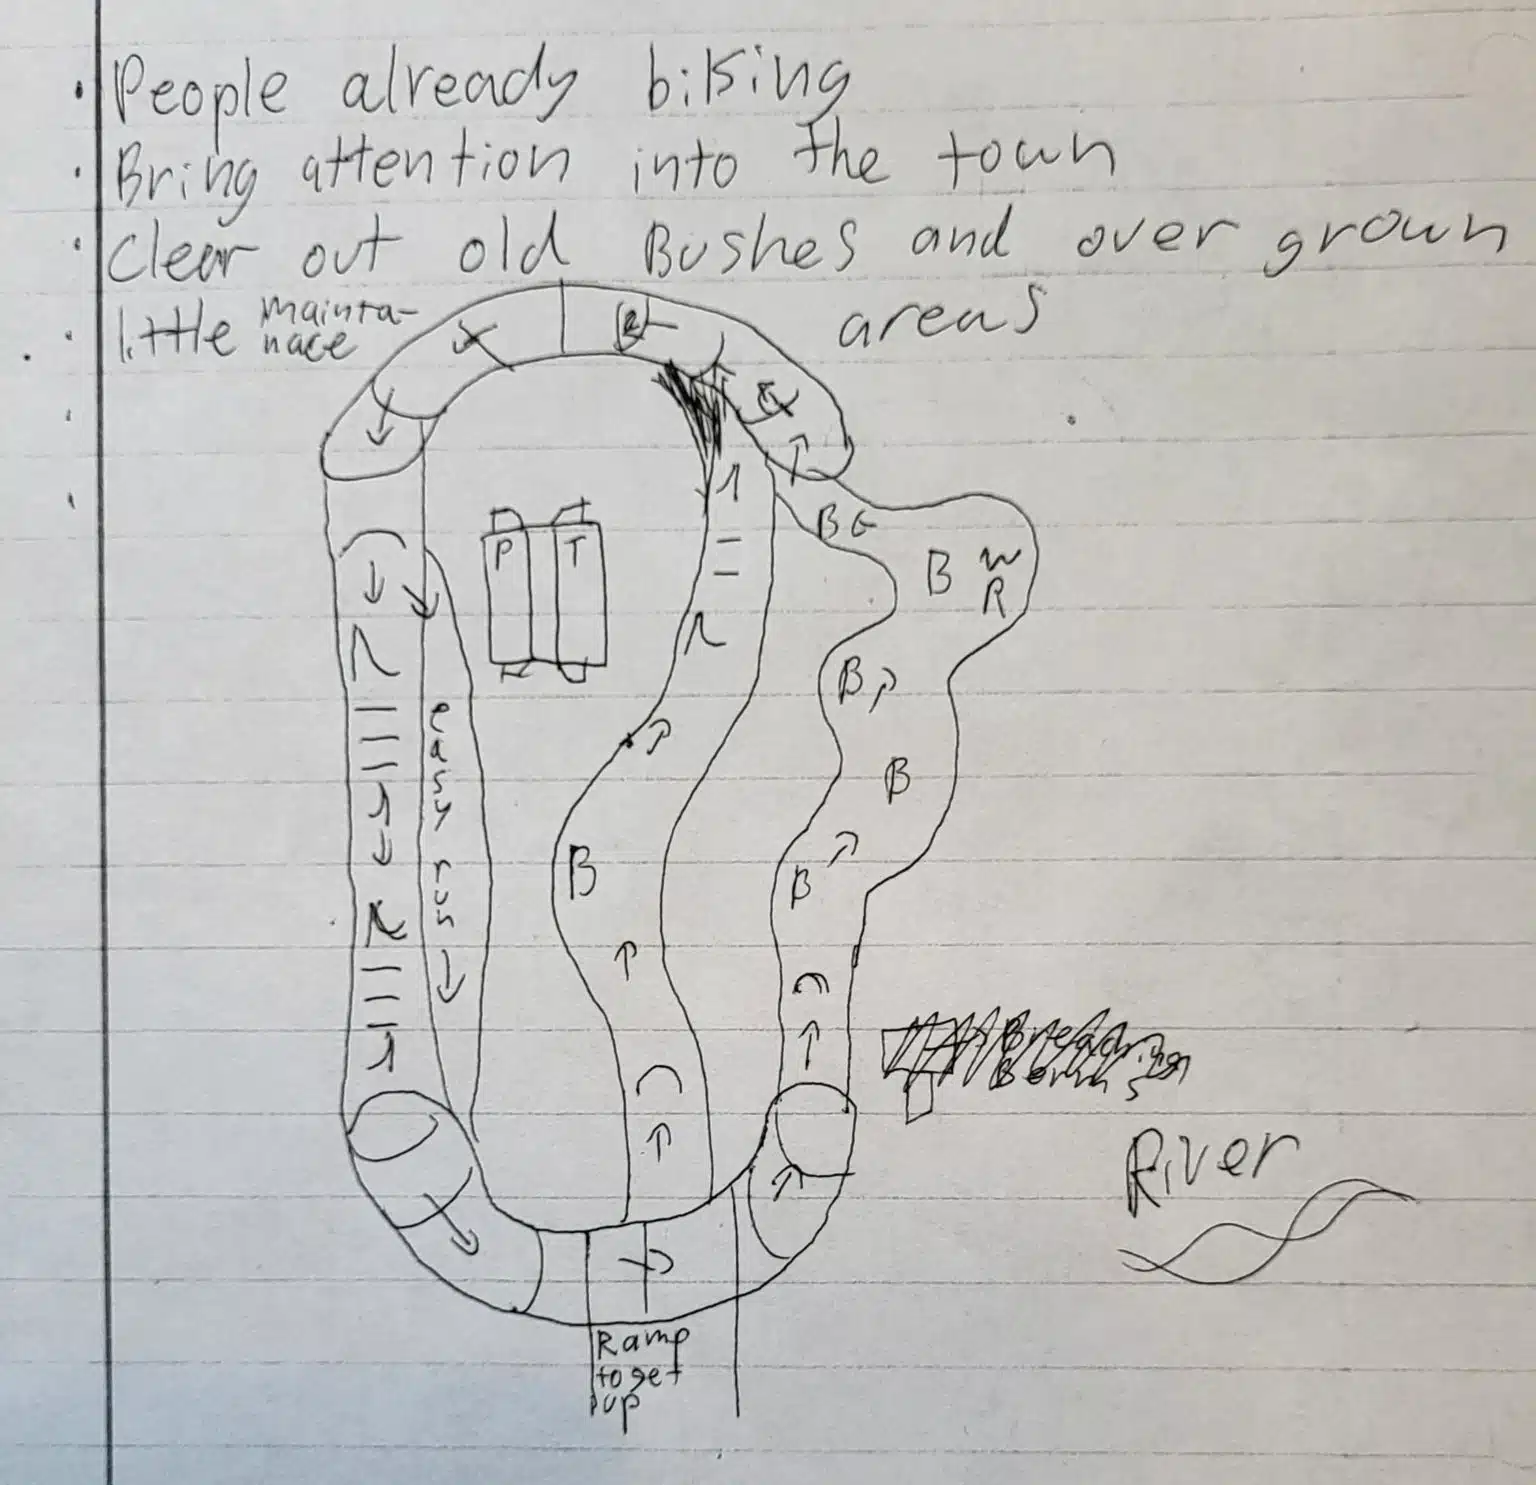 • People already biking
• Bring attention into the town
• Clear out old Bushes and over grown
areas
• little mainta-
nace
B E
B W
R
P T
B
easy run
B
B
B
River
Ramp
to get
up